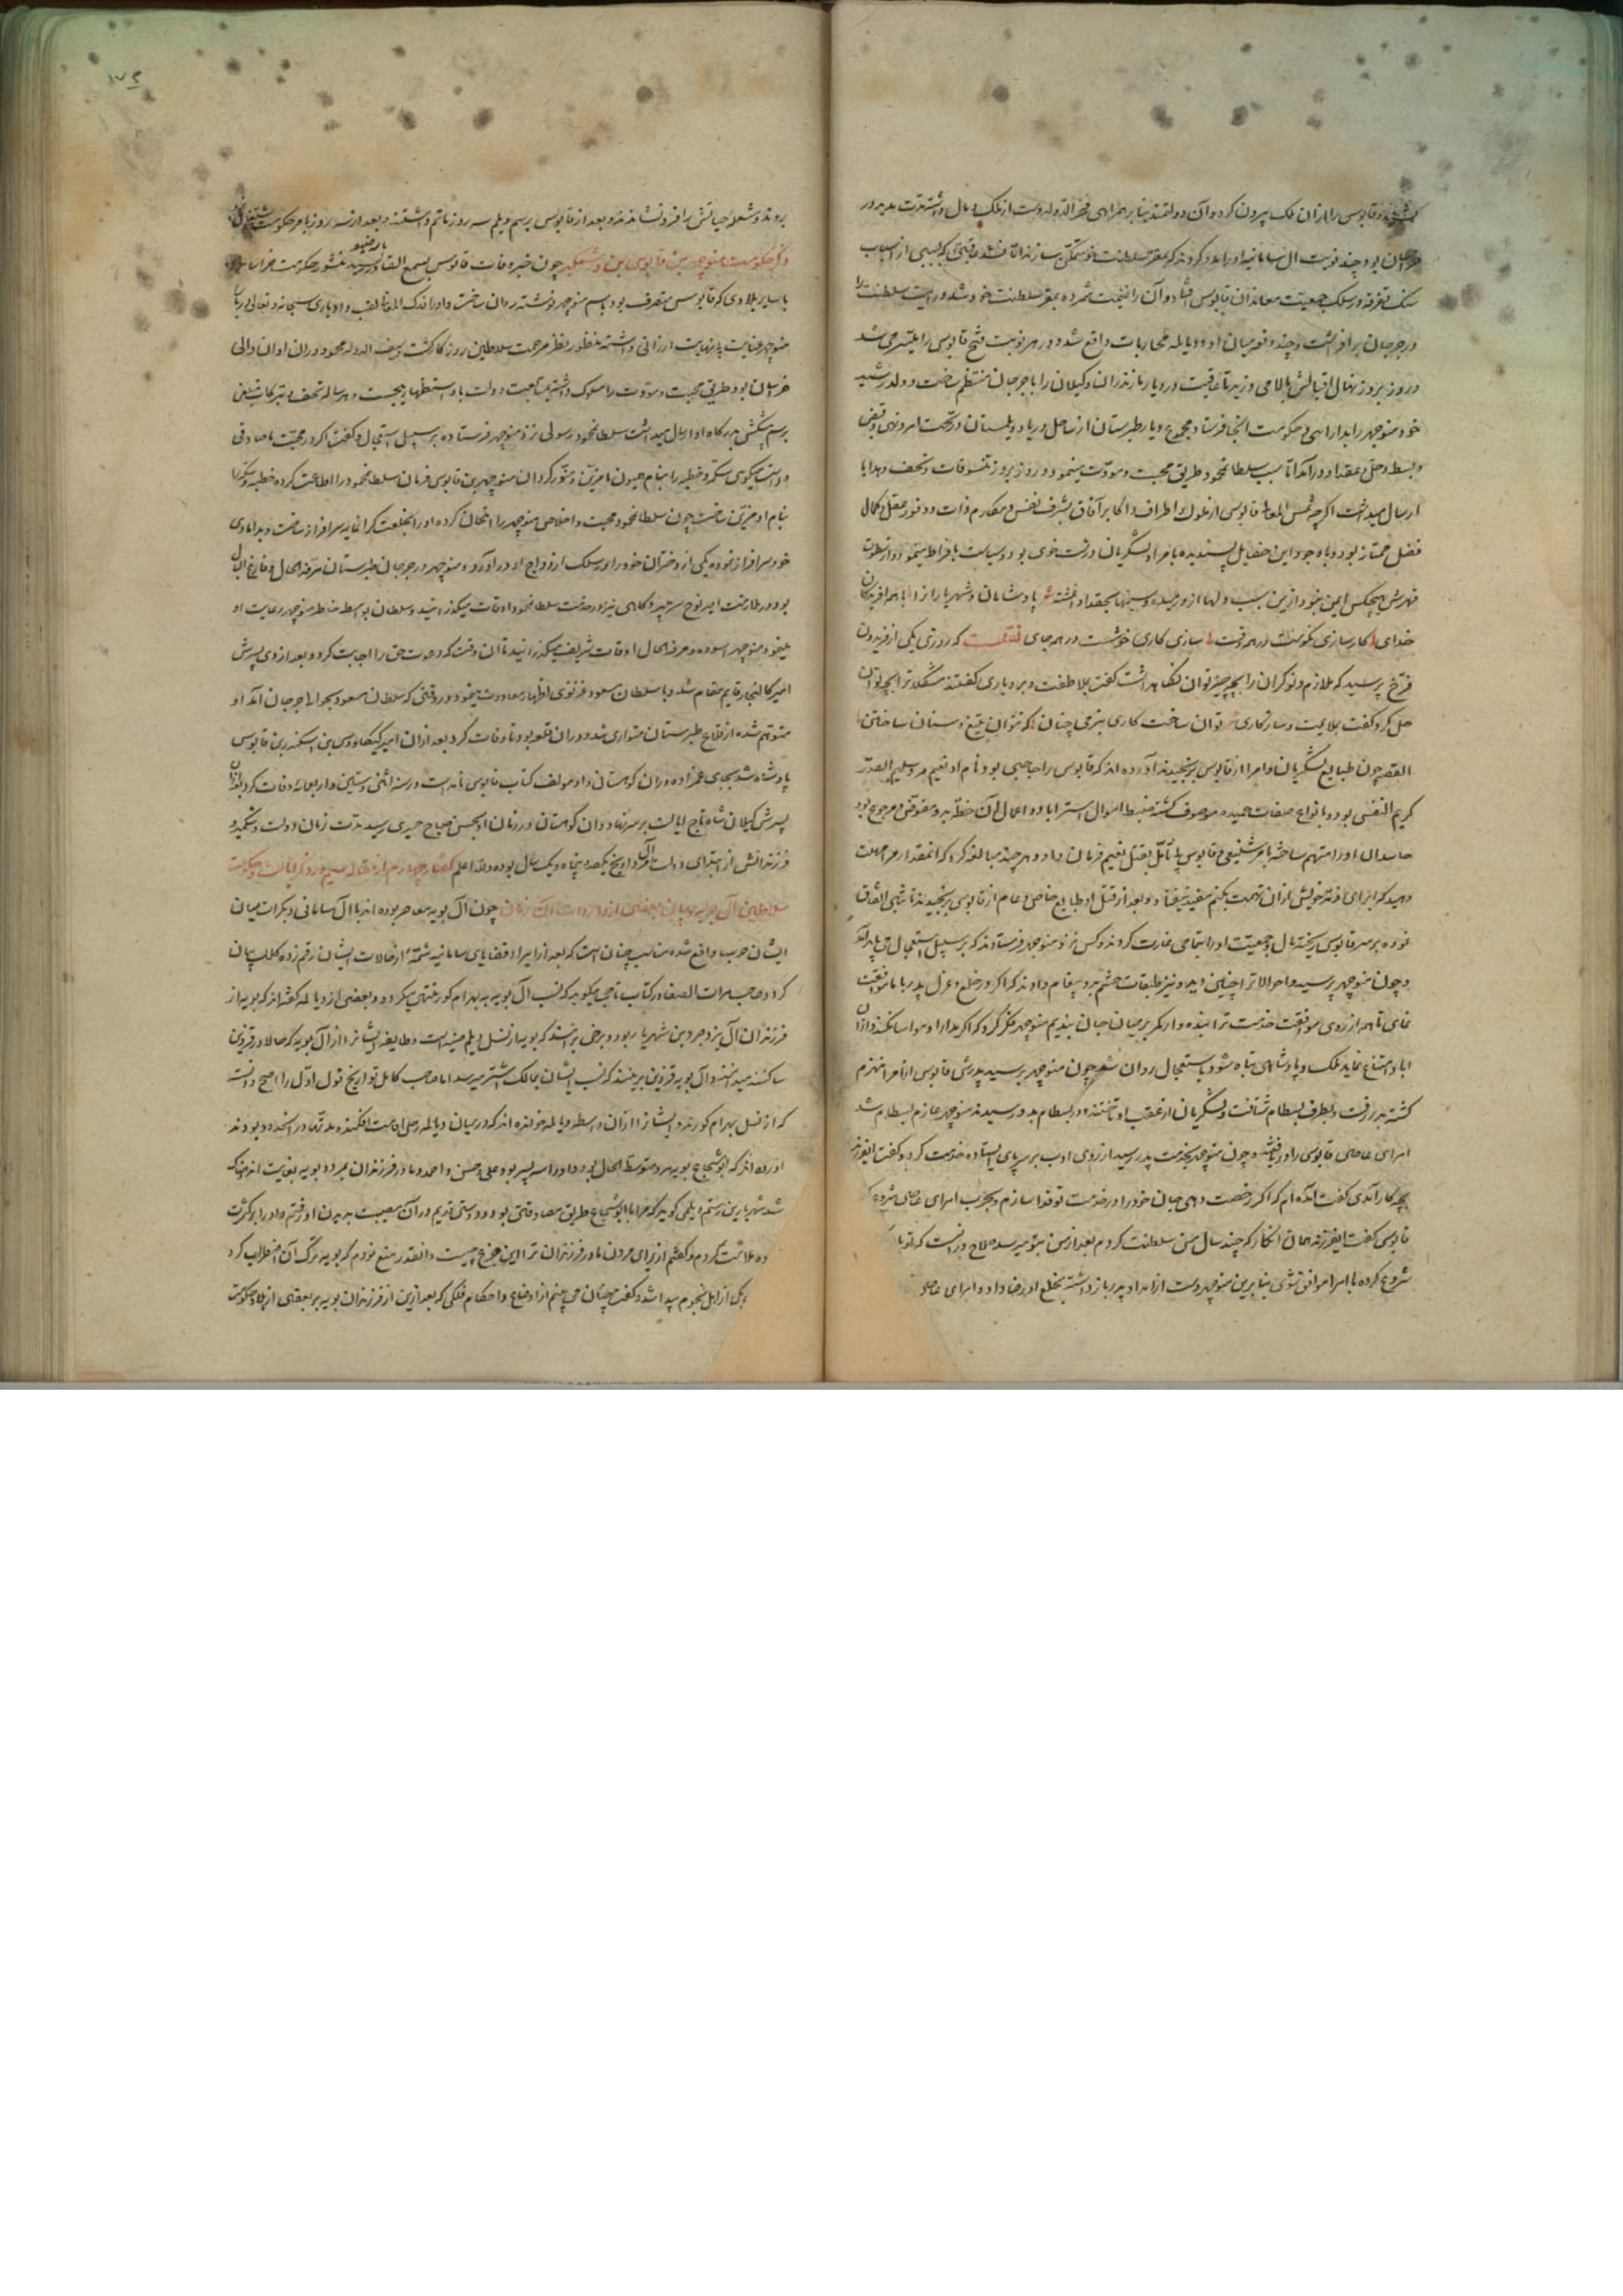 و قابوس را از ان ملک بیرون کردند و آن دولتمند بنا بر همراهی فخر الدوله دست از ملک و مال داشته مدت مدید در
خراسان بود چند نوبت ال سامانیه او را مدد کردند که بمقر سلطنت خود متمکن سازند اما نشد عاقبتی که بسببی از اسباب
سنک تفرقه در سلک جمعیت معاندان قابوس افتاد و آن را غنیمت شمرده بمقر سلطنت خود شد و رایت سلطنت را
در جرجان بر افراشت و چند دفعه میان او و دیالمه محاربات واقع شد و در هر نوبت فتح قابوس را میسر می شد
و روز بروز نهال اقبالش بالا می زد تا عاقبت دیار مازندران و کیلان را با جرجان منتظم ساخت و ولد رشید
خود منوچهر را بدارایی و حکومت انجا فرستاد و مجموع دیار طبرستان از ساحل دریا و دیلمستان در تحت امر و نهی و قبض
و بسط و حل و عقد او در آمد اما بسبب سلطان محمود طریق محبت و مودت می نمود و روز بروز تنسوقات و تحف و هدایا
ارسال میداشت اکرچه شمس المعالی قابوس از ملوک اطراف و اکابر آفاق بشرف نفس و مکارم ذات و وفور عقل و کمال
فضل ممتاز بود و با وجود این خصایل پسندیده با امرا و لشکریان درشت خوی بود و سیاست بافراط مینمود و از سطوت
قهرش هیچکس ایمن نبود ازین سبب دلها ازو رمیده و سینها بحقد او اغشته شد پادشاهان و شهریار از
خدای را کار سازی نکوست در همه وقت سازی کاری خوشست در همه جای که روزی یکی از فریدون
فرخ پرسید که ملازم و نوکران را بچه چیز توان نکاه داشت کفت بملاطفت و بردباری کفتند مشکلات را بچه توان
حل کرد کفت بملایمت و سازکاری توان ساخت کاری بنرمی چنان که نتوان بتیغ و سنان ساختن
القصه چون طبایع لشکریان و امرا از قابوس برنجیدند آورده اند که قابوس را حاجبی بود نام او نعیم مرد سلیم الصدر
کریم النفس بود و بانواع صفات حمیده موصوف کشته ضبط اموال استراباد و اعمال آن خطه بدو مفوض و مرجوع بود
حاسدان او را متهم ساخته بامر شنیعی و قابوس بی تامل بقتل نعیم فرمان داد و هر چند مبالغه کرد که انمقدار مرا مهلت
دهید که برای ذمه خویش از ان تهمت بکنم مفید نیفتاد و بعد از قتل او طبایع خاص و عام از قابوس برنجیدند تا شبی اتفاق
نموده بر سر قابوس ریخته مال و جمعیت او را بتمامی غارت کردند و کس نزد منوچهر فرستادند که بر سبیل استعجال می باید آمد
و چون منوچهر پرسید و احوال را چنین دید و نیز طبقات حشم برو پیغام دادند که اکر در خلع و عزل پدر با ما موافقت
نمای ما هم از روی موافقت خدمت ترا بنده وار کمر بر میان جان بندیم منوچهر فکر کرد که اکر مدارا و مواسا نکند و از ان
ابا و امتناع نماید ملک و پادشاهی تباه شود باستعجال روان شد چون منوچهر برسید پدرش قابوس از امرا منهزم
کشته بدر رفت و بطرف بسطام شتافت و لشکریان از عقب او تاختند و در بسطام بدو رسیدند منوچهر عازم بسطام شد
امرای عاصی قابوس را دریافته و چون منوچهر بخدمت پدر رسید از روی ادب بر سر پای ایستاده خدمت کرد و کفت ایفرزند
بچه کار آمدی کفت امده ام که اکر رخصت دهی جان خود را در خدمت تو فدا سازم و بحرب امرای عاصی شروع
قابوس کفت ایفرزند همان انکار که چند سال من سلطنت کردم بعد از من بتو میرسد صلاح در انست که تو با
شروع کرده با امرا موافق شوی بنا برین منوچهر دست از امداد پدر باز داشته بخلع او رضا داد و امرای عاصی
۱۷۶
بروند و شعله حیاتش را فرو نشاندند و بعد از قابوس برسم دیلم سه روز ماتم داشتند و بعد از سه روز بامر حکومت مشتغل
ذکر حکومت منوچهر بن قابوس بن وشمکیر چون خبر وفات قابوس بسمع القادر رسید منشور حکومت خراسان
با سایر بلادی که قابوس متصرف بود باسم منوچهر نوشته روان ساخت و او را فلک المعالی لقب داد باری سبحانه و تعالی در باب
منوچهر عنایت بی نهایت ارزانی داشته منظور نظر مرحمت سلاطین روزکار کشت و سیف الدوله محمود در ان اوان والی
خراسان بود طریق محبت و مودت را مسلوک داشته بمتابعت دولت با او استظهار می جست و هر ساله تحف و تبرکات بعض
برسم پیشکش بدرکاه او ارسال میداشت سلطان محمود رسولی نزد منوچهر فرستاده بر سبیل استعجال و کفت اکر در محبت ما صادقی
و راست میکوی سکه و خطبه را بنام همیون ما مزین و منور کردان منوچهر بن قابوس فرمان سلطان محمود را اطاعت کرده خطبه و سکه را
بنام او مزین ساخت چون سلطان محمود محبت و اخلاص منوچهر را امتحان کرده او را بخلعت کرانمایه سرافراز ساخت و بدامادی
خود سرافراز نموده یکی از دختران خود را در سلک ازدواج او در آورد و منوچهر در جرجان و طبرستان مرفه الحال و فارغ البال
بود و در ملازمت امیر نوح سر میبرد و کاهی نیز در خدمت سلطان محمود اوقات میکذرانید و سلطان بواسطه خاطر منوچهر رعایت او
مینمود منوچهر اسوده و مرفه الحال اوقات شریف میکذرانید تا ان وقت که دعوت حق را اجابت کرد و بعد از وی پسرش
امیر کالنجار قایم مقام شد و با سلطان مسعود غزنوی اظهار معاودت مینمود و در وقتی که سلطان مسعود بحوالی جرجان آمد او
متوهم شده از قلاع طبرستان متواری شد و در ان قلعه بود تا وفات کرد بعد از ان امیر کیکاوس بن اسکندر بن قابوس
پادشاه شد بجای عمزاده در ان کوهستان و او مولف کتاب قابوس نامه است در سنه اثنی و ستین و اربعمائه وفات کرد بعد از ان
پسرش کیلان شاه تاج ایالت بر سر نهاد و ان کوهستان در زمان او بحسن صباح حمیری رسید مدت زمان دولت وشمکیر و
فرزندانش از ابتدای دولت تا آخر تاریخ یکصد و پنجاه و یک سال بوده و الله اعلم کفتار چهارم از مقاله سیم در ذکر ایالت و حکومت
سلاطین آل بویه و بیان بعضی از واردات آن زمان چون آل بویه معاصر بوده اند با آل سامانی و بکرات میان
ایشان حرب واقع شده مناسب چنان است که بعد از ایراد قضایای سامانیه شمه از حالات ایشان رقم زده کلک بیان
کردد صاحب مرات الصفا در کتاب تاجی میکوید که نسب آل بویه به بهرام کور منتهی میکردد و بعضی از دیالمه کفته اند که بویه از
فرزندان آل یزدجرد بن شهریار بود و برخی برانند که بویه از نسل دیلم ضبه است و طایفه ایشان را از آل بویه که حالا در قزوین
ساکنند میدانند و آل بویه قزوین برینند که نسب ایشان بمالک اشتر میرسد اما صاحب کامل تواریخ قول اول را اصح دانسته
که از نسل بهرام کورند و ایشان را از ان واسطه دیالمه خوانده اند که در میان دیالمه رحل اقامت افکنده مدتها در انحدود بودند
اورده اند که ابو شجاع بویه مرد متوسط الحال بود و او را سه پسر بود علی و حسن و احمد و مادر فرزندان بمرد و بویه بغایت اندوهناک
شد شهریار بن رستم دیلمی کوید که مرا با ابو شجاع طریق مصادقتی بود و دوستی قدیم در آن مصیبت بدیدن او رفتم و او را بر کثرت
ملامت کردم و کفتم از برای مردن مادر فرزندان ترا این جزع چیست و انقدر منع نمودم که بویه ترک آن اضطراب کرد
یکی از اهل نجوم پیدا شد و کفت چنان می بینم از اوضاع و احکام فلکی که بعد ازین از فرزندان بویه بر بعضی از بلاد حکومت